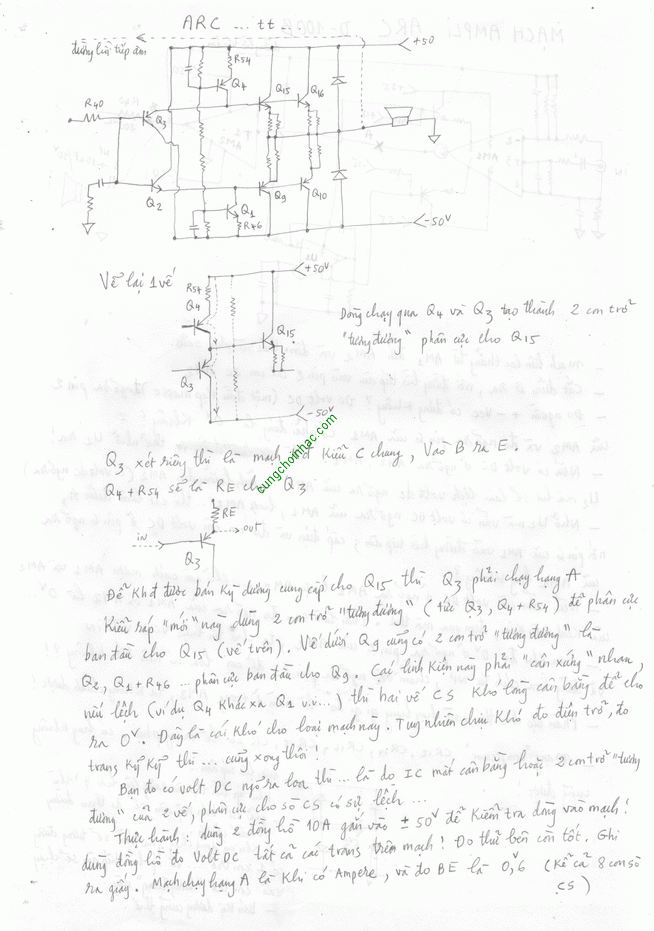 ARC ... tt ..
đường hồi tiếp âm
+50
R54
Q4
Q15
Q16
R40
Q3
Q2
Q9
Q10
Q1
R46
-50V
Vẽ lại 1 vế
+50V
R54
Q4
Q15
Q3
-50V
Dòng chạy qua Q4 và Q3 tạo thành 2 con trở
"tương đương" phân cực cho Q15
cungchoinhac.com
Q3 xét riêng thì là mạch Kđ Kiểu C chung, Vào B ra E.
Q4 + R54 sẽ là RE cho Q3
RE
in
out
Q3
Để Khđ được bán Kỳ dương cung cấp cho Q15 thì Q3 phải chạy hạng A
Kiểu ráp "mới" này dùng 2 con trở "tương đương" (tức Q3, Q4 + R54) để phân cực
ban đầu cho Q15 (vế trên). Vế dưới Q9 cũng có 2 con trở "tương đương" là
Q2, Q1 + R46 ... phân cực ban đầu cho Q9. Các linh Kiện này phải "cân xứng" nhau,
nếu lệch (ví dụ Q4 Khác xa Q1 v.v...) thì hai vế CS Khó lòng cân bằng để cho
ra 0V. Đây là cái Khó cho loại mạch này. Tuy nhiên chịu Khó đo điện trở, đo
trans Kỹ Kỹ thì ... cũng xong thôi!
Bạn đo có volt DC ngõ ra loa thì ... là do IC mất cân bằng hoặc 2 con trở "tương
đương" của 2 vế, phân cực cho sò CS có sự lệch ...
Thực hành: dùng 2 đồng hồ 10A gắn vào ± 50V để Kiểm tra dòng vào mạch!
dùng đồng hồ đo Volt DC tất cả các trans trên mạch! Đo thử bên còn tốt. Ghi
ra giấy. Mạch chạy hạng A là Khi có Ampere, và đo BE là 0,6V (Kể cả 8 con sò
CS)